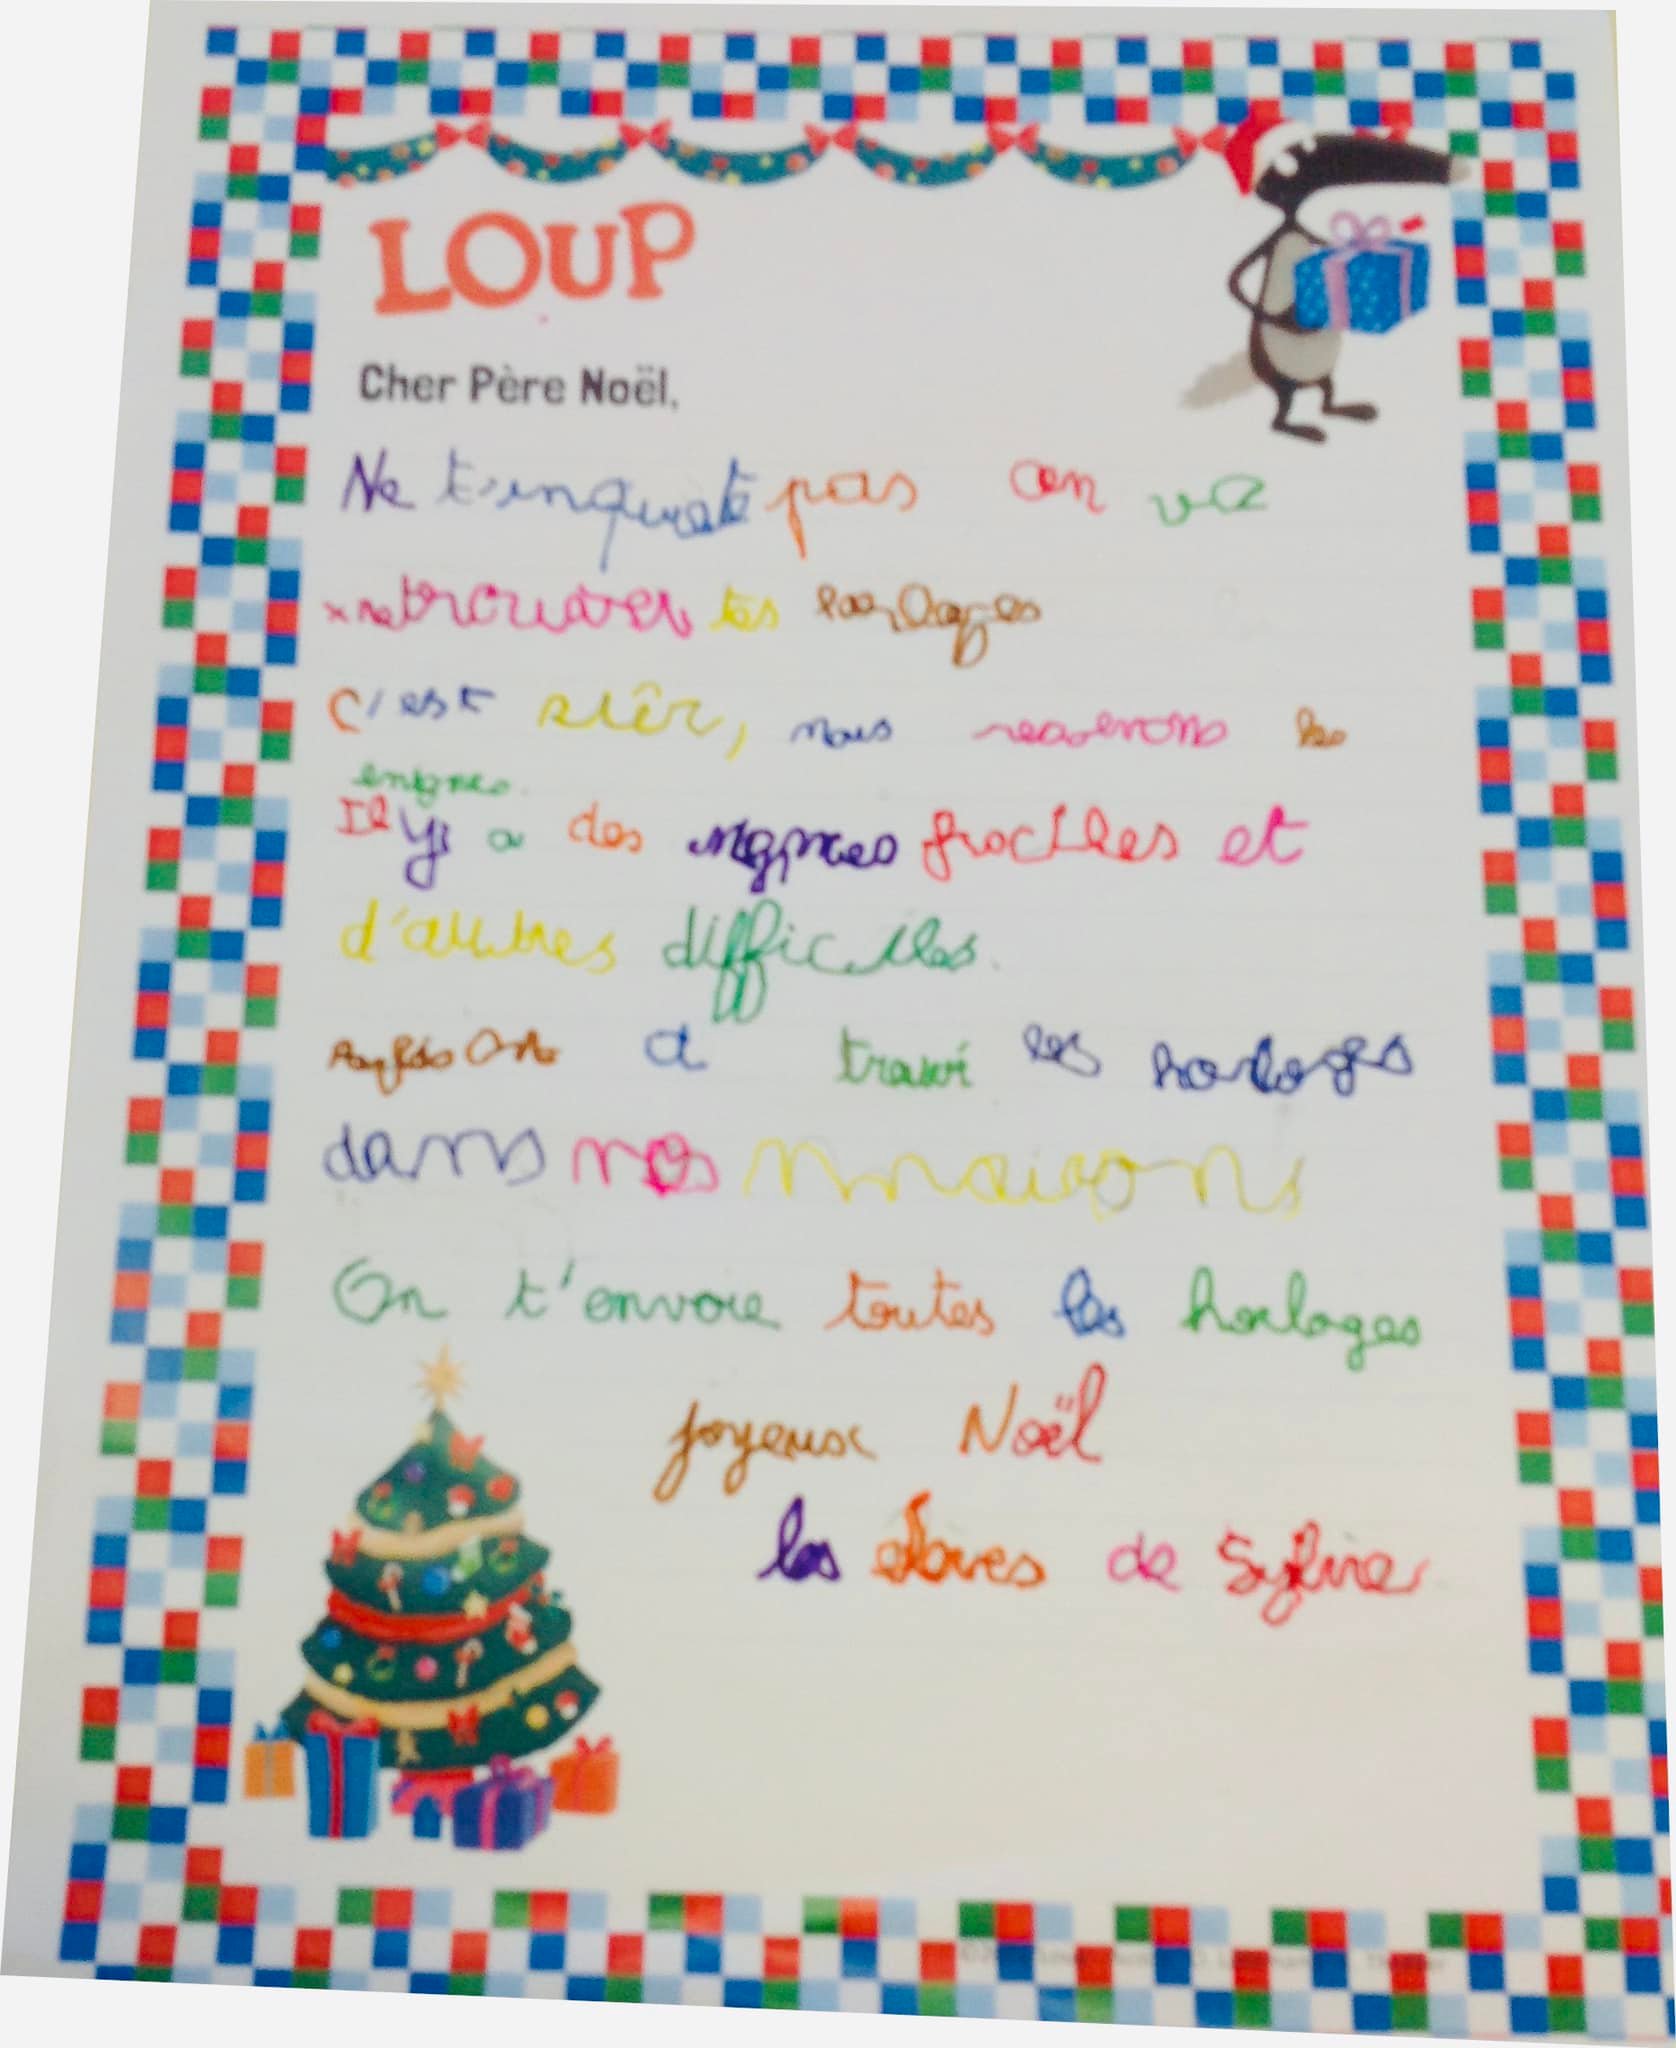 LOUP
Cher Père Noël,
Ne t'inquiète pas on va
retrouver tes horloges
c'est sûr, nous les
Il y a des faciles et
d'autres difficiles.
on a les horloges
dans nos maisons
On t'envoie toutes les horloges
joyeux Noël
les élèves de Sylvie